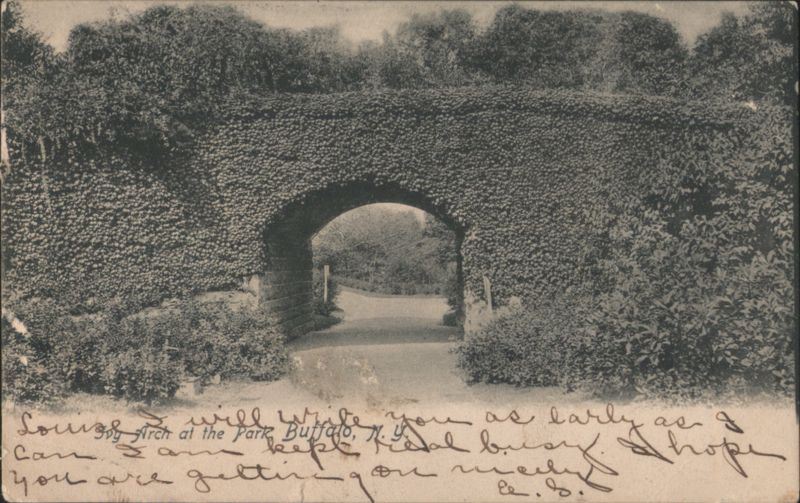 Louise I will write you as early as I
Ivy Arch at the Park, Buffalo, N. Y.
can I am kept real busy. I hope
you are getting on nicely
E. S.